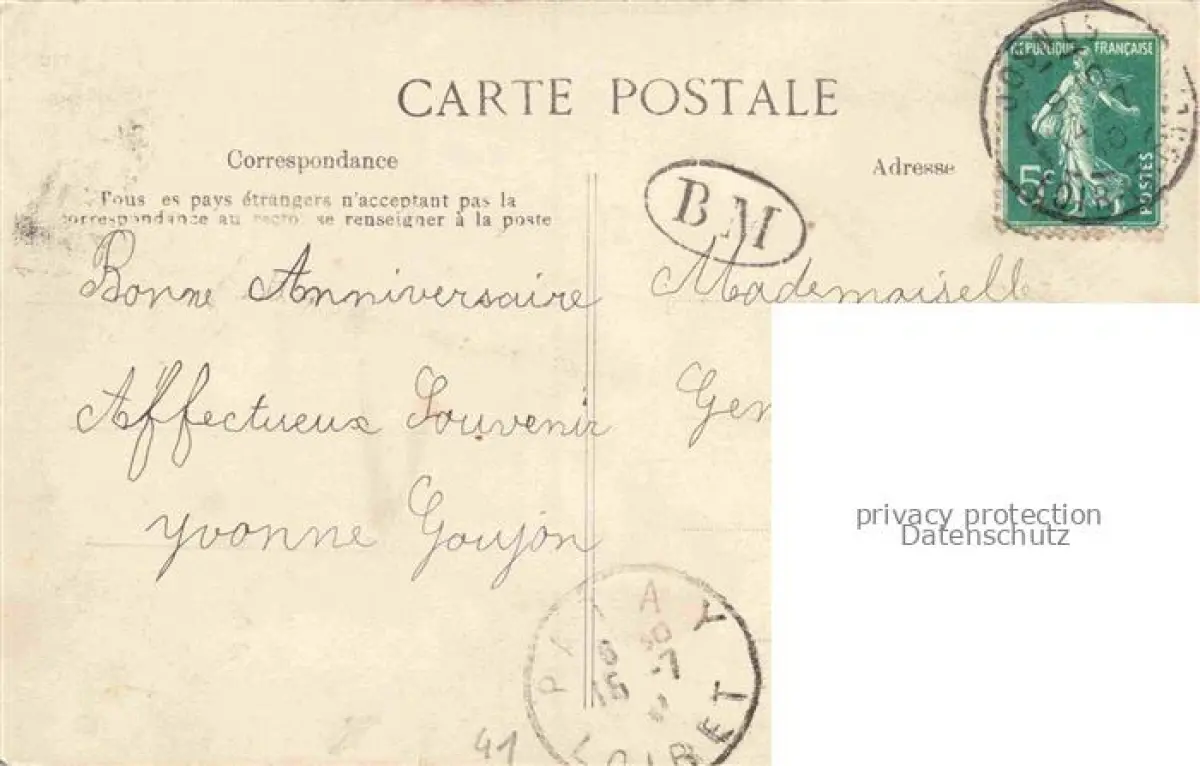 CARTE POSTALE
Correspondance
Tous es pays étrangers n'acceptant pas la
correspondance au recto, se renseigner à la poste
Bonne Anniversaire
Affectueux Souvenir
Yvonne Goujon
41
BM
Adresse
Mademoiselle
Gen
REPUBLIQUE FRANÇAISE
5c
POSTES
JOSNES
PATAY
LOIRET
privacy protection
Datenschutz